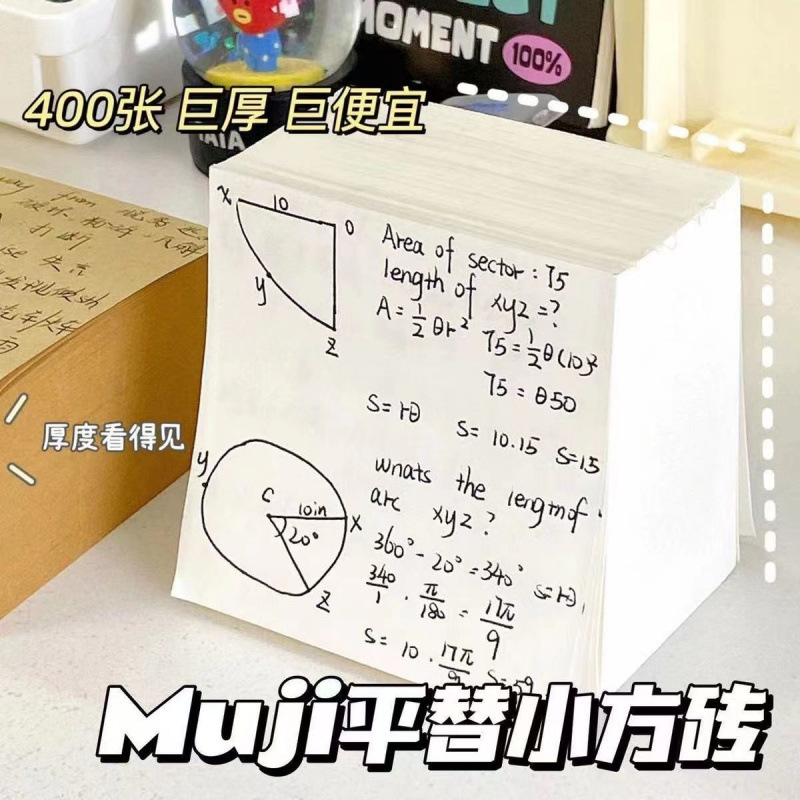 MOMENT
100%
400张 巨厚 巨便宜
x 10 0
y
z
Area of sector : 75
length of xyz = ?
A = 1/2 θr²
75 = 1/2 θ(10)²
75 = θ50
S = rθ
S = 10.15 S=15
wnats the length of
arc xyz ?
y
c 10in x
20°
z
360° - 20° = 340° S=rθ
340/1 · π/180 = 17π/9
S = 10 · 17π/9 S=59
打断
失去
厚度看得见
Muji平替小方砖